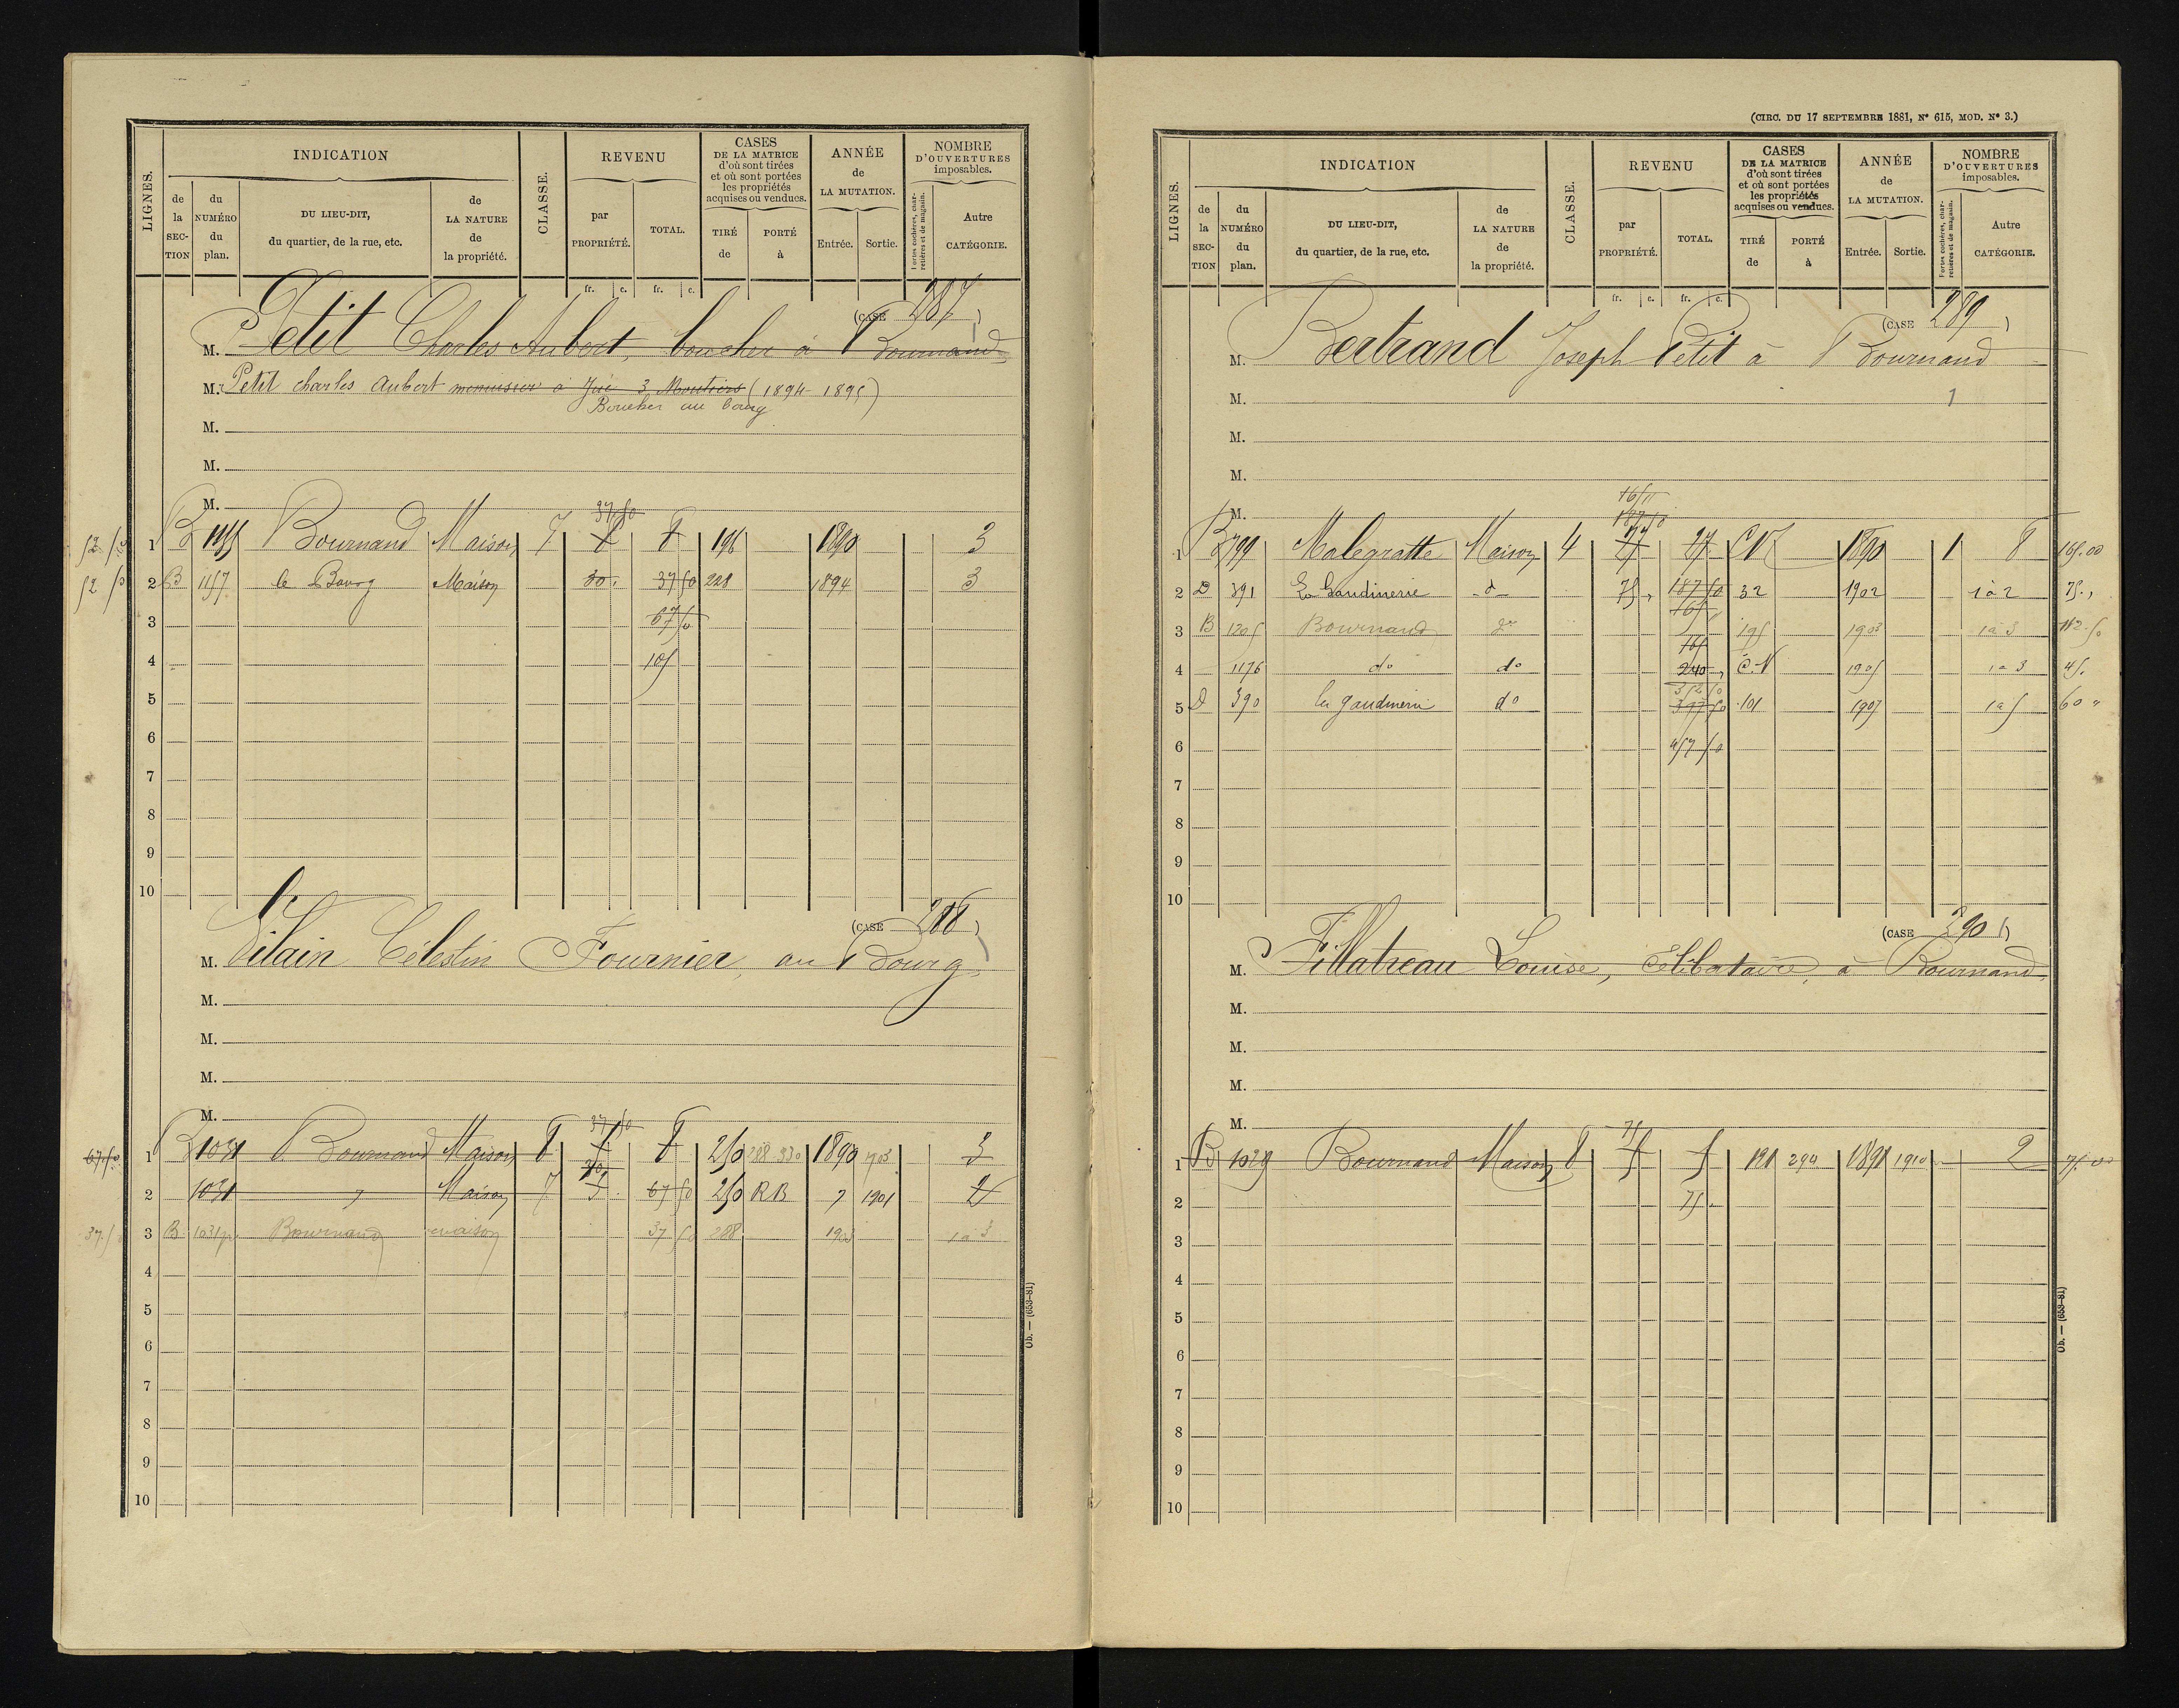 LIGNES.
INDICATION
de la SEC-TION
du NUMÉRO du plan.
DU LIEU-DIT, du quartier, de la rue, etc.
de LA NATURE de la propriété.
CLASSE.
REVENU
par PROPRIÉTÉ.
TOTAL.
CASES DE LA MATRICE d'où sont tirées et où sont portées les propriétés acquises ou vendues.
TIRÉ de
PORTÉ à
ANNÉE de LA MUTATION.
Entrée.
Sortie.
NOMBRE D'OUVERTURES imposables.
Portes cochères, char-retières et de magasin.
Autre CATÉGORIE.
fr. c. fr. c.
(CASE 287)
M. Petit Charles Aubert, boucher à Bournand
M. Petit charles Aubert menuisier à 3 Moutiers (1894-1895)
Boucher au bourg
M.
M.
M.
37 50
52 50 1 B 1155 Bournand Maison 7 8 8 196 1890 3
52 50 2 B 1157 le Bourg Maison 30. 37 50 228 1894 3
3 67 50
4 105
5
6
7
8
9
10
(CASE 288)
M. Vilain Célestin Fournier, au Bourg
M.
M.
M.
M.
37 50
67 50 1 B 1031 Bournand Maison 8 8 8 250 288-330 1890 1903 3
30
2 1031 Maison 7 5 67 50 250 RB 1901 2
37.5 3 B 1031p Bournand maison 37 50 288 1903 1 à 3
4
5
6
7
8
9
10
Ob. — (653-81)
(CIRC. DU 17 SEPTEMBRE 1881, N° 615, MOD. N° 3.)
LIGNES.
INDICATION
de la SEC-TION
du NUMÉRO du plan.
DU LIEU-DIT, du quartier, de la rue, etc.
de LA NATURE de la propriété.
CLASSE.
REVENU
par PROPRIÉTÉ.
TOTAL.
CASES DE LA MATRICE d'où sont tirées et où sont portées les propriétés acquises ou vendues.
TIRÉ de
PORTÉ à
ANNÉE de LA MUTATION.
Entrée.
Sortie.
NOMBRE D'OUVERTURES imposables.
Portes cochères, char-retières et de magasin.
Autre CATÉGORIE.
fr. c. fr. c.
(CASE 289)
M. Bertrand Joseph Petit à Bournand
M. 1
M.
M.
165
M. 187 50
1 B 799 Malegratte Maison 4 27 27 CN 1890 1 8 165.00
2 D 391 La Gaudinerie d 75 187 50 32 1902 1 à 2 75.
165
3 B 1205 Bournand do 195 1903 1 à 3 112.50
165
4 1176 do do 240 C.N 1905 1 à 3 45.
352 50
5 D 390 la gaudinerie do 397 50 101 1907 1 à 5 60 "
6 457 50
7
8
9
10
(CASE 290)
M. Fillatreau Louise, célibataire, à Bournand
M.
M.
M.
M.
75
1 B 1029 Bournand Maison 8 5 5 191 294 1891 1910 2 75.00
2 75
3
4
5
6
7
8
9
10
Ob. — (653-81)